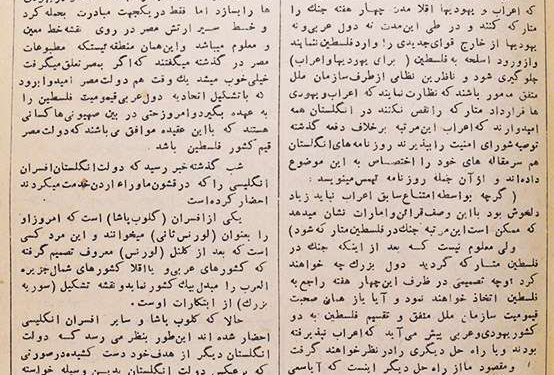 که اعراب و یهودیها اقلا مدت چهار هفته جنك را
متارکه کنند و در طی این مدت نه دول عربی و نه
یهودیها از خارج قوای جدیدی را وارد فلسطین ننمایند
و از ورود اسلحه بفلسطین ( برای یهودیها و اعراب )
جلوگیری شود و ناظرین نظامی از طرف سازمان ملل
متفق مامور باشند که نظارت نمایند که اعراب و یهودی
ها قرارداد متارکه را نقص نکنند در انگلستان همه
امیدوارند که اعراب این مرتبه بر خلاف دفعه گذشته
توصیه شورای امنیت را بپذیرند روزنامه های انگلستان
هم سرمقاله های خود را اختصاص به این موضوع
داده اند و از آن جمله روزنامه تیمس مینویسد :
( گرچه بواسطه امتناع سابق اعراب نباید زیاد
دلخوش بود با این وصف قرائن و امارات نشان میدهد
که ممکن است این مرتبه جنك در فلسطین متارکه شود )
ولی معلوم نیست که بعد از اینکه جنك در
فلسطین متارکه گردید دول بزرگ چه خواهند
کرد و چه تصمیمی در ظرف این چهار هفته راجع به
فلسطین اتخاذ خواهند نمود و آیا باز همان صحبت
قیمومیت سازمان ملل متفق و تقسیم فلسطین به دو
کشور یهودی و عربی پیش می آید که اعراب نپذیرفته
بودند و یا راه حل دیگری را در نظر خواهند گرفت
و مقصود ما از راه حل دیگر اینست که آیا سعی
ها را بسازد اما فقط در یکجهت مبادرت بحمله کرد
و خط سیر ارتش مصر در روی نقشه خط معین
و معلوم میباشد و این همان منطقه ئیستکه مطبوعات
مصر در گذشته میگفتند که اگر بمصر تعلق میگرفت
خیلی خوب میشد یك وقت هم دولت مصر امیدوار بود
که با تشکیل اتحادیه دول عربی قیمومیت فلسطین را
به عهده بگیرد و امروز حتی در بین صهیونی ها کسانی
هستند که با این عقیده موافق می باشند که دولت مصر
قیم کشور فلسطین باشد .
شب گذشته خبر رسید که دولت انگلستان افسران
انگلیسی را که در قشون ماوراء اردن خدمت میکردند
احضار کرده است
یکی از افسران ( کلوب پاشا ) است که امروز او
را بعنوان ( لورنس ثانی ) میخوانند و این مرد کسی
است که بعد از کلنل ( لورنس ) معروف تصمیم گرفته
که کشورهای عربی و یا اقلا کشورهای شمال جزیره
العرب را مبدل بیك کشور نماید و نقشه تشکیل ( سوریه
بزرگ ) از ابتکارات اوست .
حالا که کلوب پاشا و سایر افسران انگلیسی
احضار شده اند این طور بنظر می رسد که دولت
انگلستان دیگر از هدف خود دست کشیده در صورتی
که بر عکس دولت انگلستان بدین وسیله خواسته